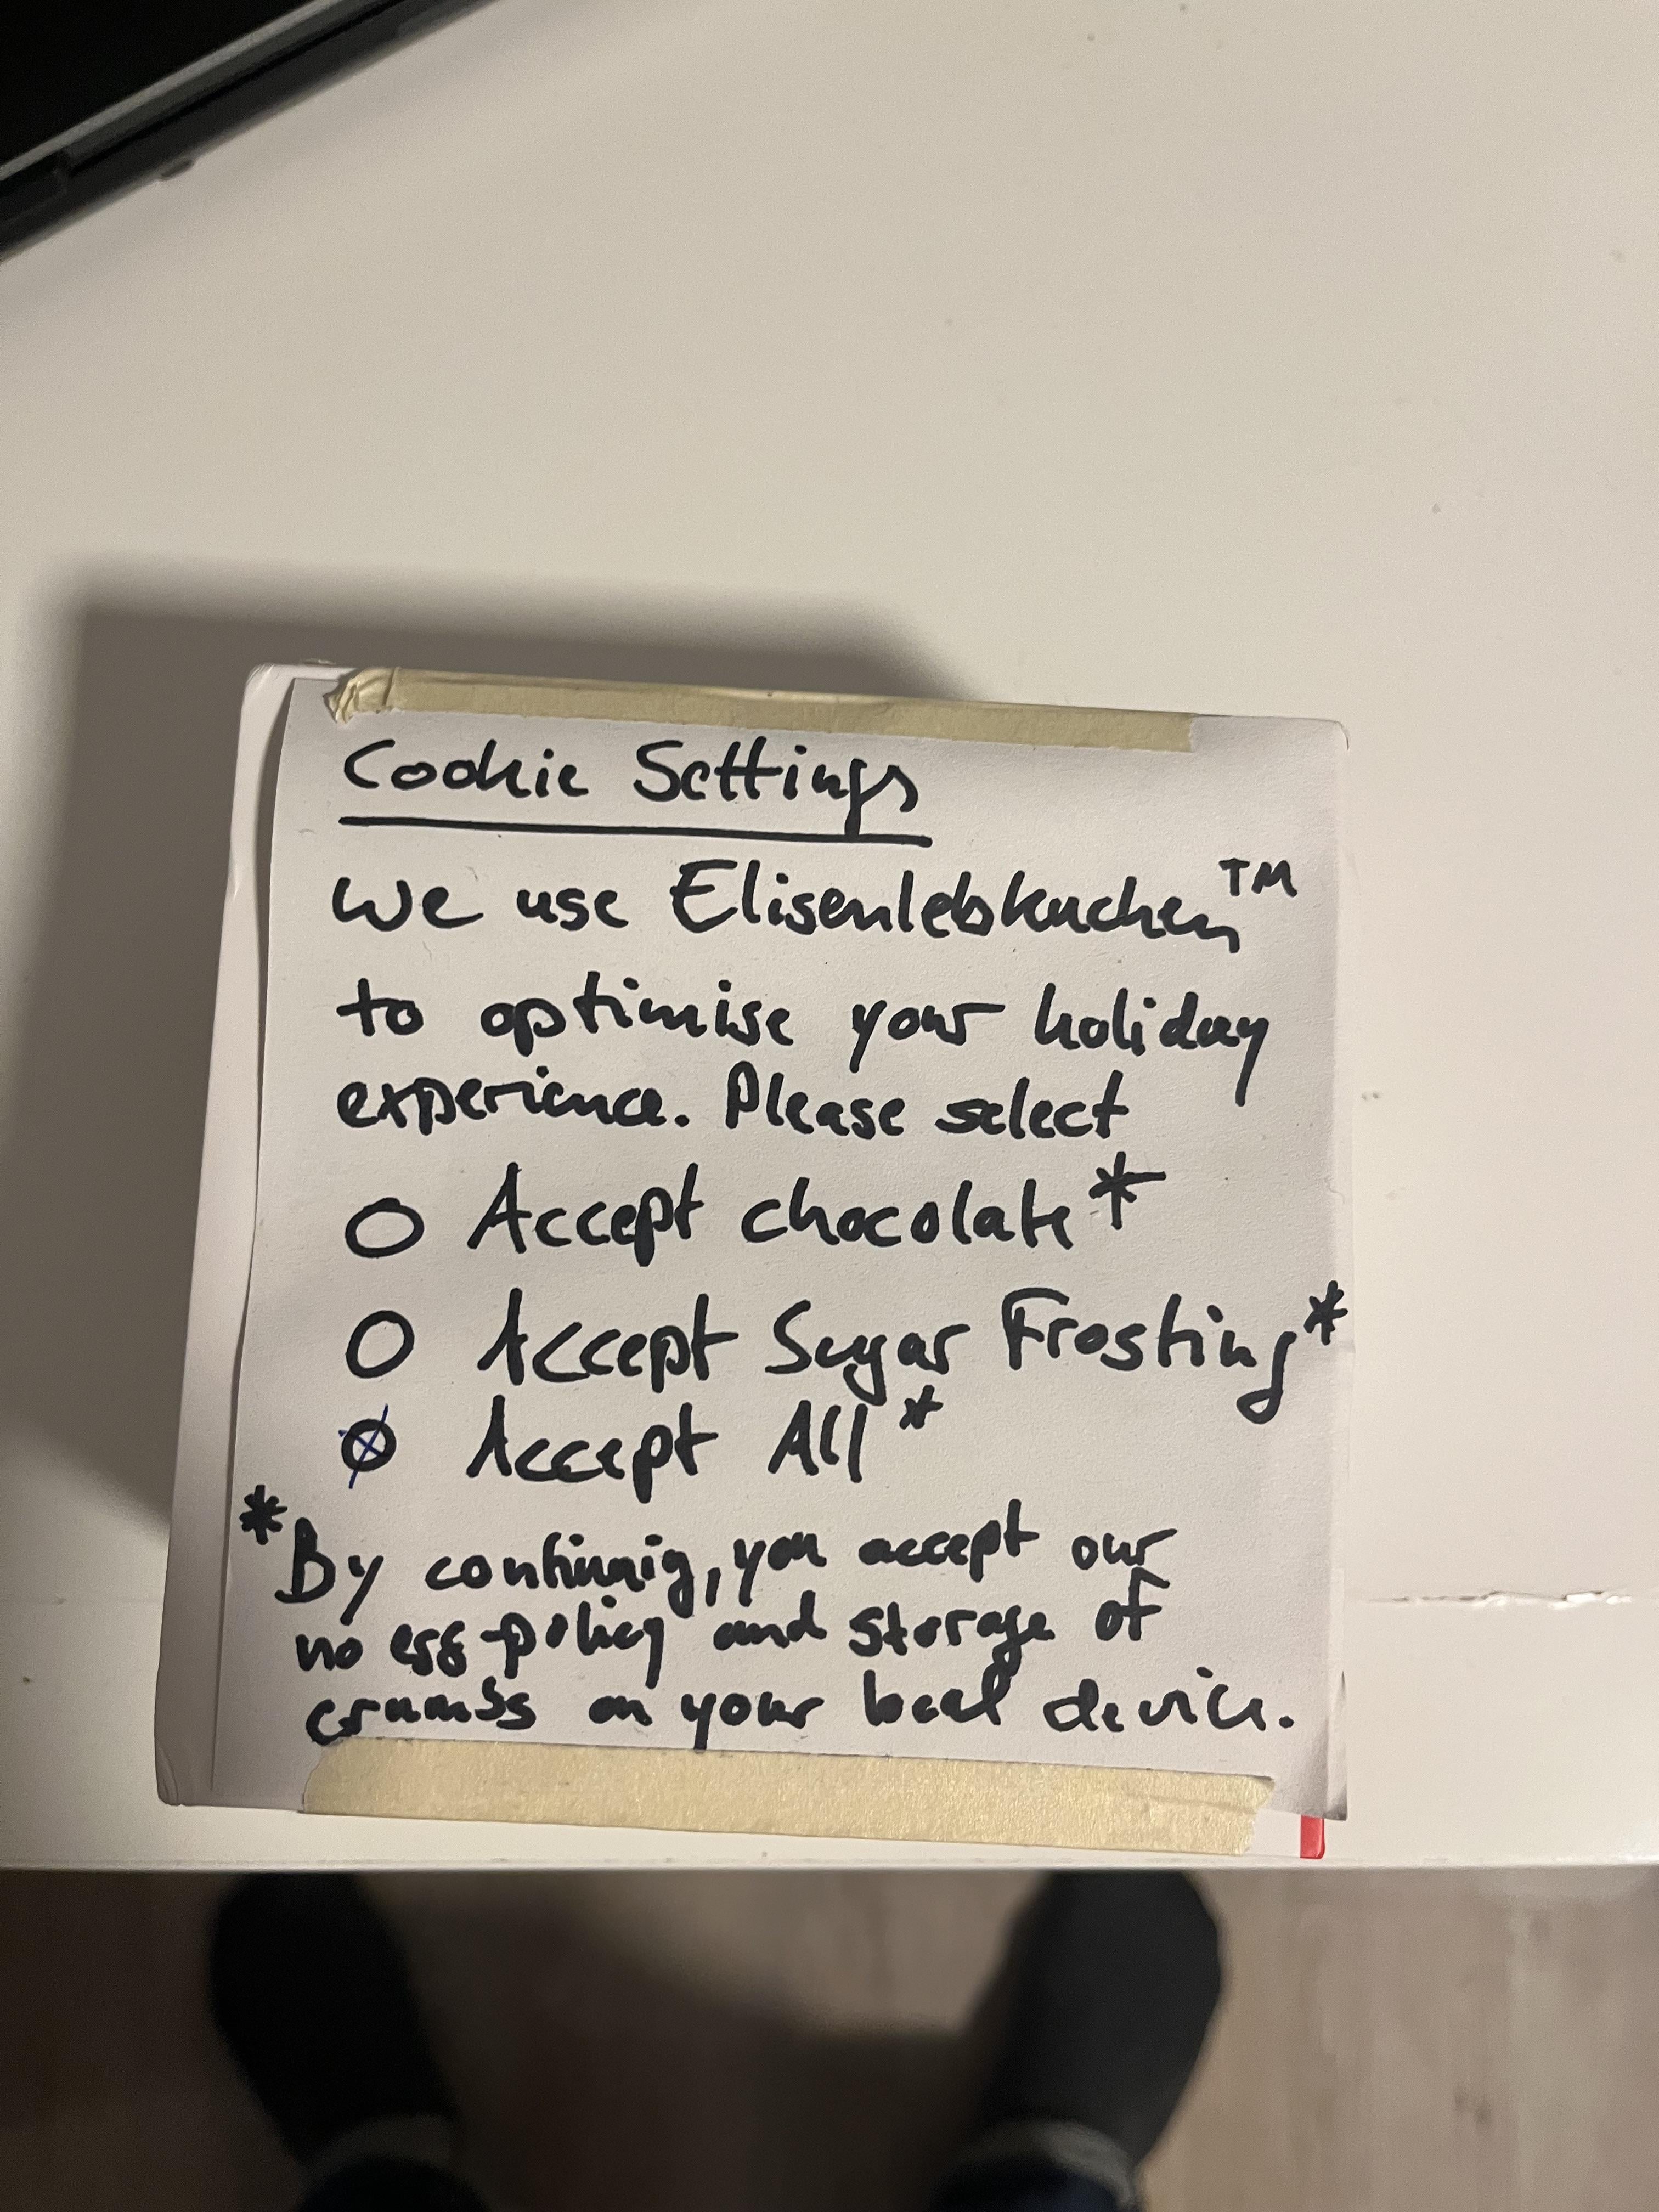 Cookie Settings
We use Elisenlebkuchen™
to optimise your holiday
experience. Please select
O Accept chocolate*
O Accept Sugar Frosting*
⊗ Accept All*
*By continuing, you accept our
no egg-policy and storage of
crumbs on your local device.